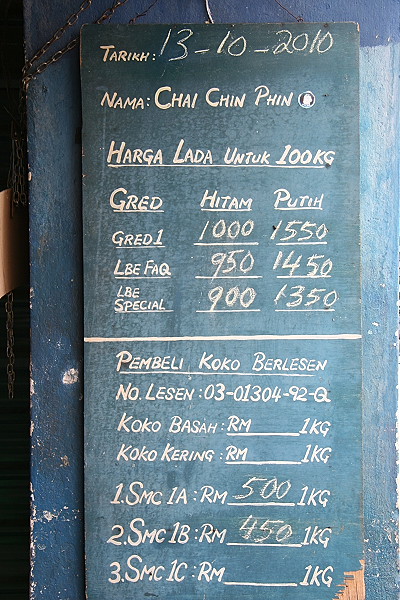 TARIKH: 13-10-2010
NAMA: CHAI CHIN PHIN
HARGA LADA UNTUK 100KG
GRED HITAM PUTIH
GRED 1 1000 1550
LBE FAQ 950 1450
LBE SPECIAL 900 1350
PEMBELI KOKO BERLESEN
NO. LESEN: 03-01304-92-Q
KOKO BASAH: RM ______ 1KG
KOKO KERING: RM ______ 1KG
1. SMC 1A: RM 500 1KG
2. SMC 1B: RM 450 1KG
3. SMC 1C: RM ______ 1KG